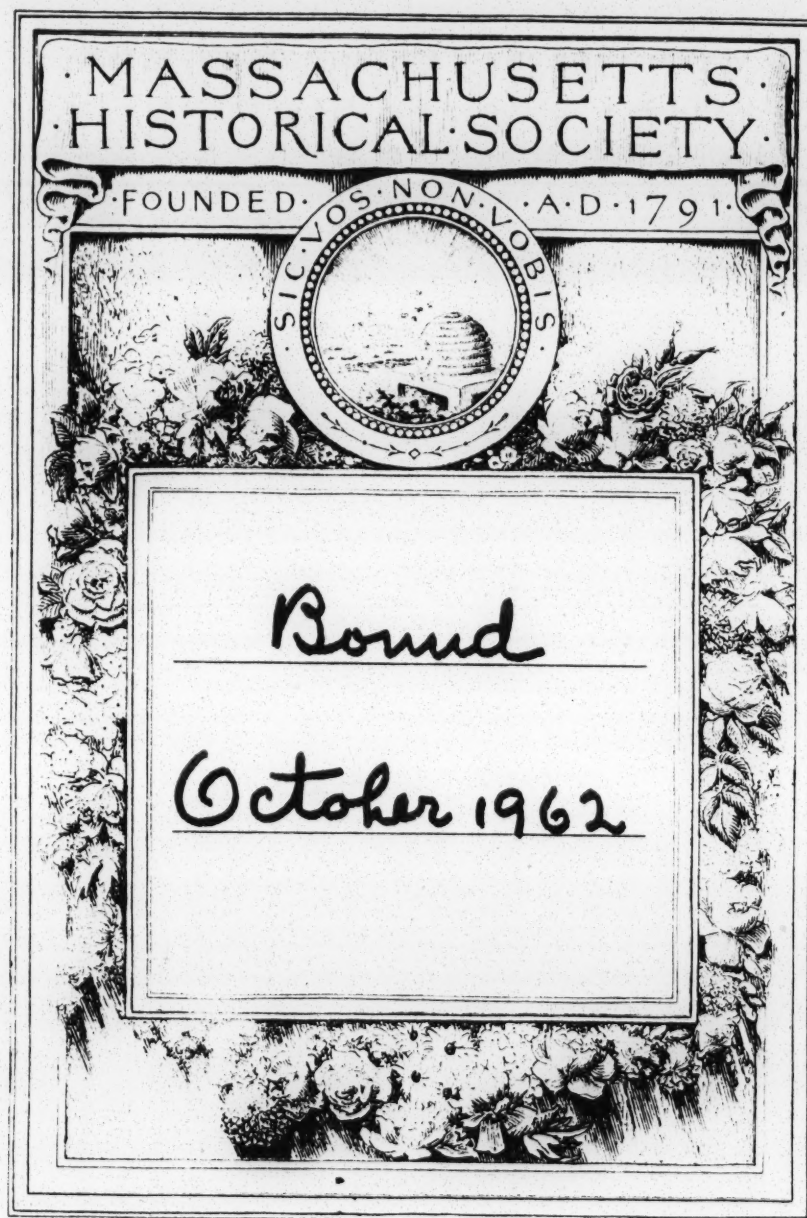 ·MASSACHUSETTS·
·HISTORICAL·SOCIETY·
·FOUNDED· ·A·D·1791·
·SIC·VOS·NON·VOBIS·
Bound
October 1962